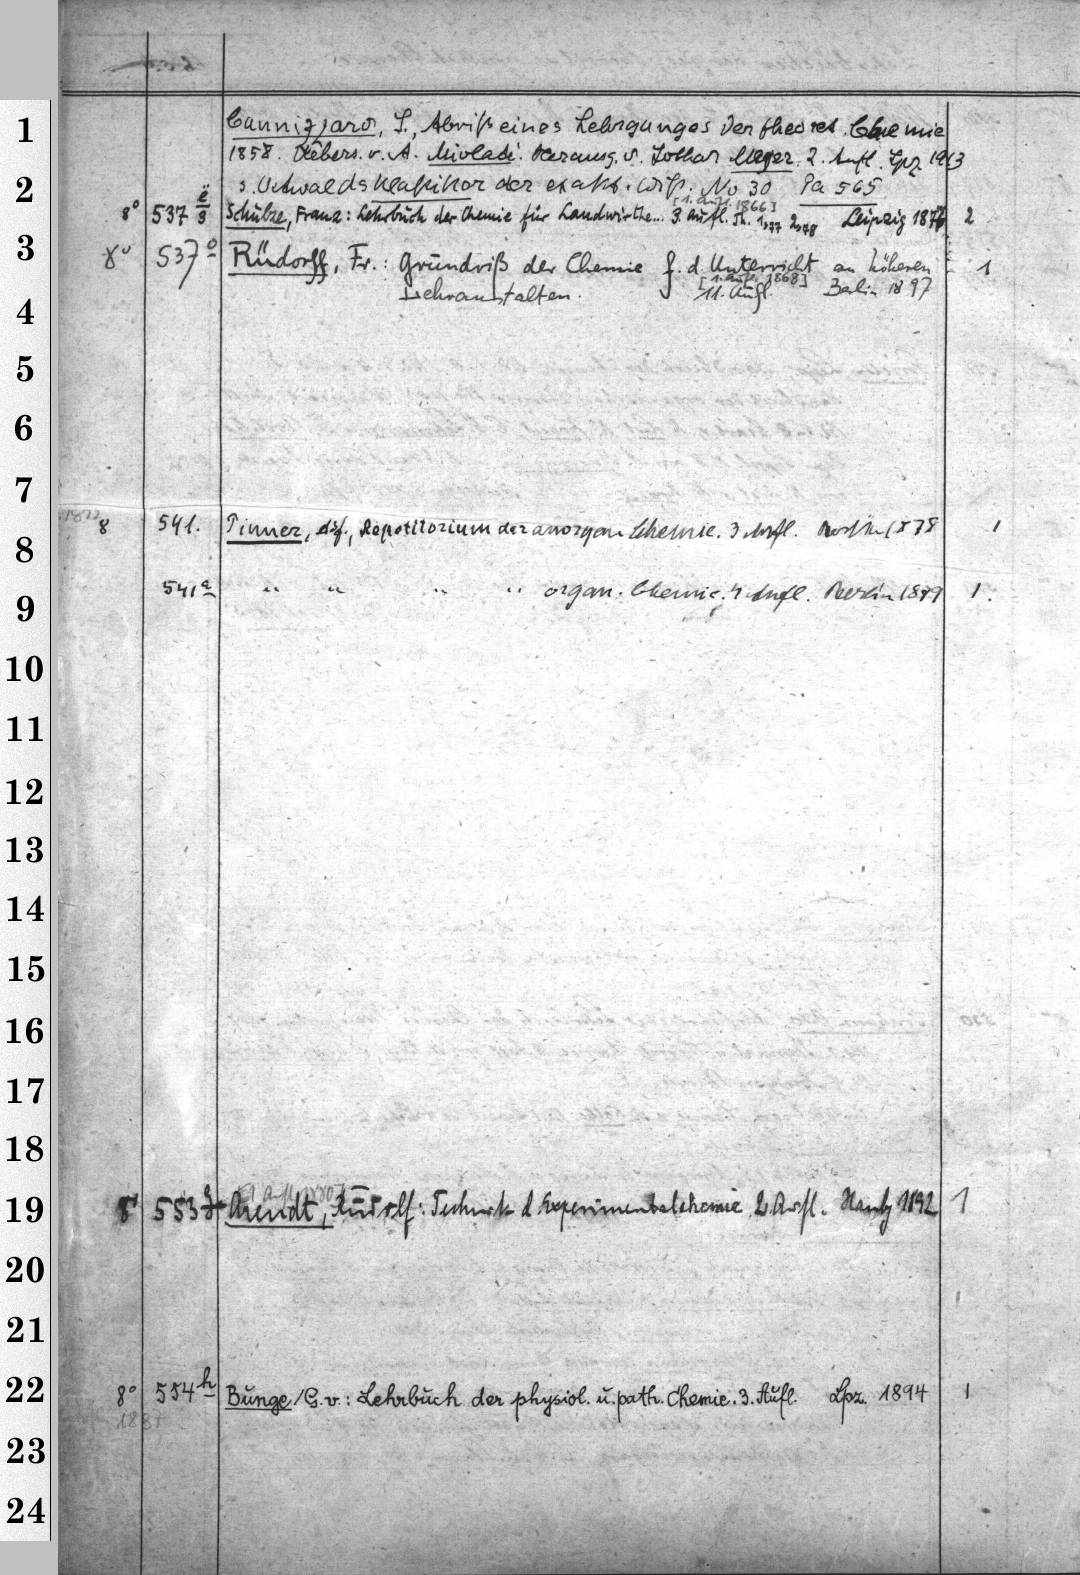 1 Cannizzaro, S., Abriß eines Lehrganges der theoret. Chemie
1858. Uebers. v. A. Miolati. Herausg. v. Lothar Meyer. 2. Aufl. Lpz. 1913
2 s. Ostwalds Klassiker der exakt. Wiss. No 30 Pa 565
[1. Aufl. 1866]
8° 537 ë/3 Schulze, Franz: Lehrbuch der Chemie für Landwirthe... 3. Aufl. Th. 1,77 2,78 Leipzig 1877 2
3 8° 537 o Rüdorff, Fr.: Grundriß der Chemie f. d. Unterricht an höheren 1
[1. Aufl. 1868]
Lehranstalten. 11. Aufl. Berlin 1897
4
5
6
7
1872
8 541. Pinner, Ad., Repetitorium der anorgan. Chemie. 3 Aufl. Berlin 1878 1
8
541a " " " " organ. Chemie. 4 Aufl. Berlin 1879 1.
9
10
11
12
13
14
15
16
17
18
[1 Aufl. 1880]
19 8° 553 Arendt, Rudolf: Technik d. Experimentalchemie 2. Aufl. Hambg 1892 1
20
21
22 8° 554 h Bunge, G. v.: Lehrbuch der physiol. u. path. Chemie. 3. Aufl. Lpz. 1894 1
1887
23
24